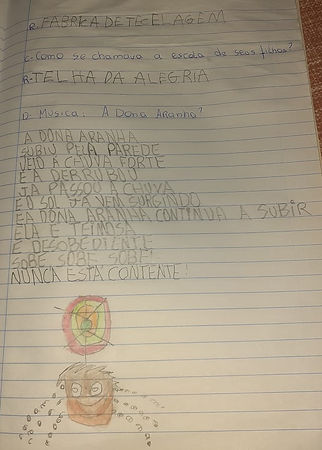 R: FABRICA DE TECELAGEM
C- Como se chamava a escola de seus filhos?
R- TELHA DA ALEGRIA
D- Musica: A Dona Aranha?
A DONA ARANHA
SUBIU PELA PAREDE
VEIO A CHUVA FORTE
E A DERRUBOU
JÁ PASSOU A CHUVA
E O SOL JÁ VEM SURGINDO
E A DONA ARANHA CONTINUA A SUBIR
ELA E TEIMOSA
E DESOBEDIENTE
SOBE SOBE SOBE!
NUNCA ESTÁ CONTENTE!